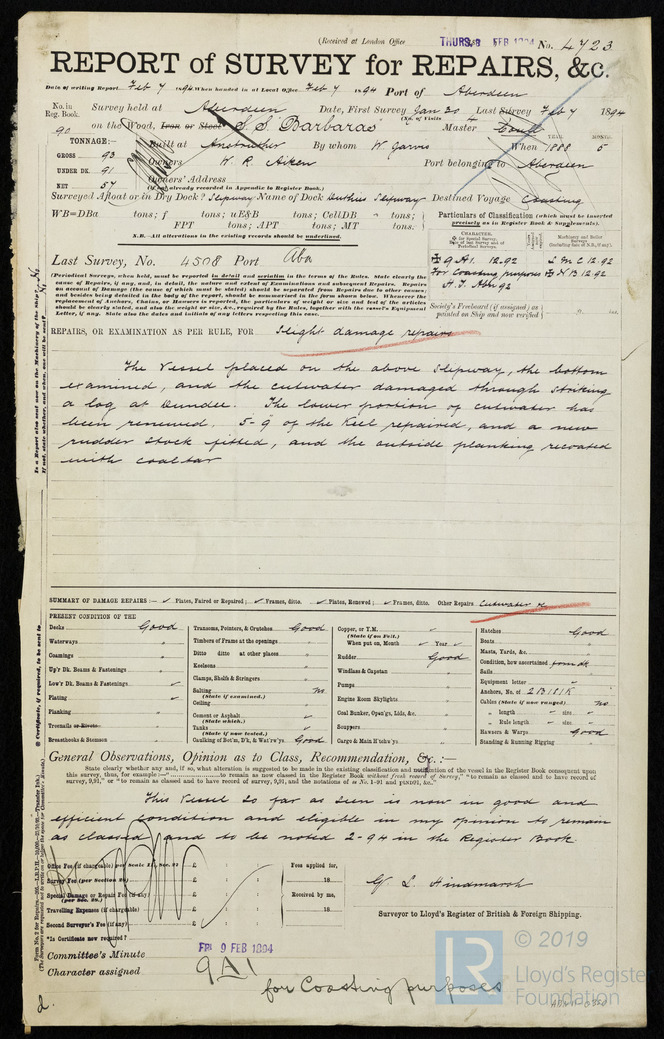 (Received at London Office THURS. 8 FEB 1894 No. 4723
REPORT of SURVEY for REPAIRS, &c.
Date of writing Report Feb 7 1894 When handed in at Local Office Feb 7 1894 Port of Aberdeen
No. in Reg. Book. Survey held at Aberdeen Date, First Survey Jan 20 Last Survey Feb 7 1894
(No. of Visits 4
90 on the Wood, Iron or Steel S.S. "Barbaras" Master
TONNAGE:— Built at Anstruther By whom W Jarvis When 1888 5
YEAR. MONTH.
GROSS 93 Owners W. R. Aiken Port belonging to Aberdeen
UNDER DK. 91 Owners' Address
NET 57 (if not already recorded in Appendix to Register Book.)
Surveyed Afloat or in Dry Dock? Slipway Name of Dock Duthies Slipway Destined Voyage Coasting
WB=DBa tons; f tons; uE&B tons; CellDB tons;
FPT tons; APT tons; MT tons.
N.B.—All alterations in the existing records should be underlined.
Particulars of Classification (which must be inserted precisely as in Register Book & Supplements).
CHARACTER.
Machinery and Boiler Surveys
(Including date of N.B., if any).
Last Survey, No. 4508 Port Aba
9 A1. 12.92 LMC 12.92
For Coasting purposes NB 12.92
(Periodical Surveys, when held, must be reported in detail and seriatim in the terms of the Rules. State clearly the
cause of Repairs, if any, and, in detail, the nature and extent of Examinations and subsequent Repairs. Repairs
on account of Damage (the cause of which must be stated) should be separated from Repairs due to other causes;
and besides being detailed in the body of the report, should be summarized in the form shewn below. Whenever the
replacement of Anchors, Chains, or Hawsers is reported, the particulars of weight or size and test of the articles
should be clearly stated, and also the weight or size, &c., required by the Rules, together with the vessel's Equipment
Letter, if any. State also the dates and initials of any letters respecting this case.
Society's Freeboard (if assigned) as painted on Ship and now verified
REPAIRS, OR EXAMINATION AS PER RULE, FOR Slight damage repairs
The Vessel placed on the above Slipway, the bottom
examined, and the cutwater damaged through striking
a log at Dundee. The lower portion of cutwater has
been renewed. 5-9 of the Keel repaired, and a new
rudder stock fitted, and the outside planking recoated
with coaltar
SUMMARY OF DAMAGE REPAIRS:— Plates, Faired or Repaired; Frames, ditto. Plates, Renewed; Frames, ditto. Other Repairs Cutwater
PRESENT CONDITION OF THE
Decks Good
Waterways "
Coamings "
Up'r Dk. Beams & Fastenings "
Low'r Dk. Beams & Fastenings
Plating
Planking "
Treenails or Rivets "
Breasthooks & Stemson "
Transoms, Pointers, & Crutches Good
Timbers of Frame at the openings "
Ditto ditto at other places "
Keelsons "
Clamps, Shelfs & Stringers "
Salting (State if examined.) No
Ceiling "
Cement or Asphalt (State which.)
Tanks (State if now tested.)
Caulking of Bot'm, D'k, & Wat'rw'ys Good
Copper, or Y.M. (State if on Felt.)
When put on, Month Year
Rudder Good
Windlass & Capstan "
Pumps "
Engine Room Skylights "
Coal Bunker, Open'gs, Lids, &c. "
Scuppers "
Cargo & Main H'tchw'ys "
Hatches Good
Boats "
Masts, Yards, &c. "
Condition, how ascertained from dk
Sails "
Equipment letter
Anchors, No. of 2B 1S 1K
Cables (State if now ranged) no
" length size
" Rule length size
Hawsers & Warps Good
Standing & Running Rigging "
General Observations, Opinion as to Class, Recommendation, &c.:—
State clearly whether any, and if so, what alteration is suggested to be made in the existing classification and notification of the vessel in the Register Book consequent upon
this survey, thus, for example:—" to remain as now classed in the Register Book without fresh record of Survey," "to remain as classed and to have record of
survey, 9,91," or "to remain classed and to have record of survey, 9,91, and the notations of
This Vessel so far as seen is now in good and
efficient condition and eligible in my opinion to remain
as classed and to be noted 2-94 in the Register Book
Office Fee (if chargeable) per Scale £ : : Fees applied for,
Survey Fee (per Section 28) £ : : 18
Special Damage or Repair Fee (if any) (per Sec. 28.) £ : : Received by me,
Travelling Expenses (if chargeable) £ : : 18
Second Surveyor's Fee (if any) £ : :
L. Hindmarsh
Surveyor to Lloyd's Register of British & Foreign Shipping.
*Is Certificate now required?
Committee's Minute FRI 9 FEB 1894
Character assigned 9A1
for Coasting purposes
LR © 2019
Lloyd's Register
Foundation